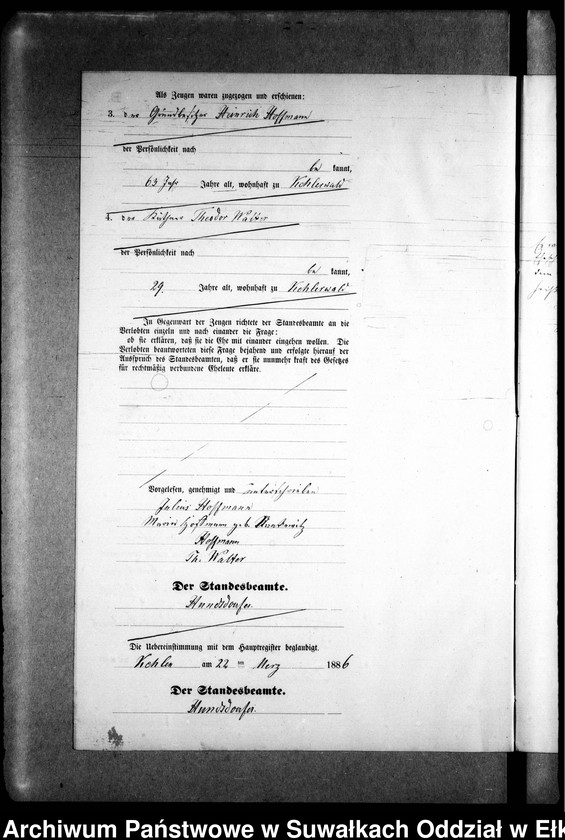 Als Zeugen waren zugezogen und erschienen:
3. der Grundbesitzer Heinrich Hoffmann
der Persönlichkeit nach
be kannt,
63 Jahr Jahre alt, wohnhaft zu Kehlerwald
4. der Käthner Theodor Walter
der Persönlichkeit nach
be kannt,
29. Jahre alt, wohnhaft zu Kehlerwald
In Gegenwart der Zeugen richtete der Standesbeamte an die
Verlobten einzeln und nach einander die Frage:
ob sie erklären, daß sie die Ehe mit einander eingehen wollen. Die
Verlobten beantworteten diese Frage bejahend und erfolgte hierauf der
Ausspruch des Standesbeamten, daß er sie nunmehr kraft des Gesetzes
für rechtmäßig verbundene Eheleute erkläre.
Vorgelesen, genehmigt und unterschrieben
Julius Hoffmann
Marie Hoffmann geb.
Hoffmann
Th. Walter
Der Standesbeamte.
Hundsdorfer.
Die Uebereinstimmung mit dem Hauptregister beglaubigt.
Kehlen am 22 ten Merz 1886
Der Standesbeamte.
Hundsdorfer.
Archiwum Państwowe w Suwałkach Oddział w Ełk